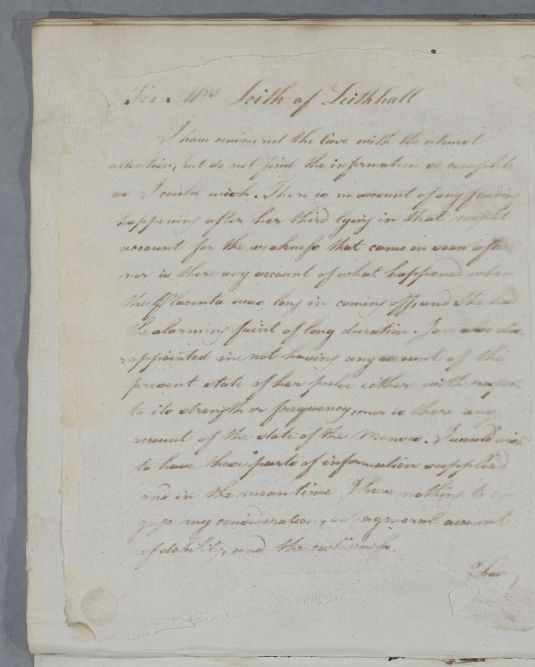 For Mrs Leith of Leithhall
I have considered the Case with the utmost
attention, but do not find the information as complete
as I could wish. There is no account of any flooding
happening after her third lying in that might
account for the weakness that came on soon after
nor is there any account of what happened when
the Placenta was long in coming off, and She had
the alarming faint of long duration. I am also dis
=appointed in not having any account of the
present state of her pulse either with respect
to its strength or frequency, nor is there any
account of the state of the Menses. I would wish
to have these parts of information supplied
and in the mean time I have nothing to en
gage my consideration, but a general account
of debility, and the